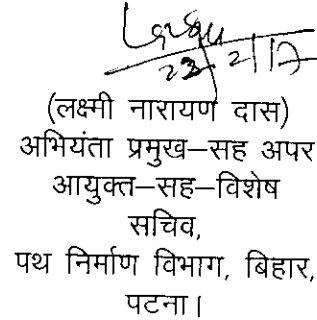 23.2.17
(लक्ष्मी नारायण दास)
अभियंता प्रमुख–सह अपर
आयुक्त–सह–विशेष
सचिव,
पथ निर्माण विभाग, बिहार,
पटना।